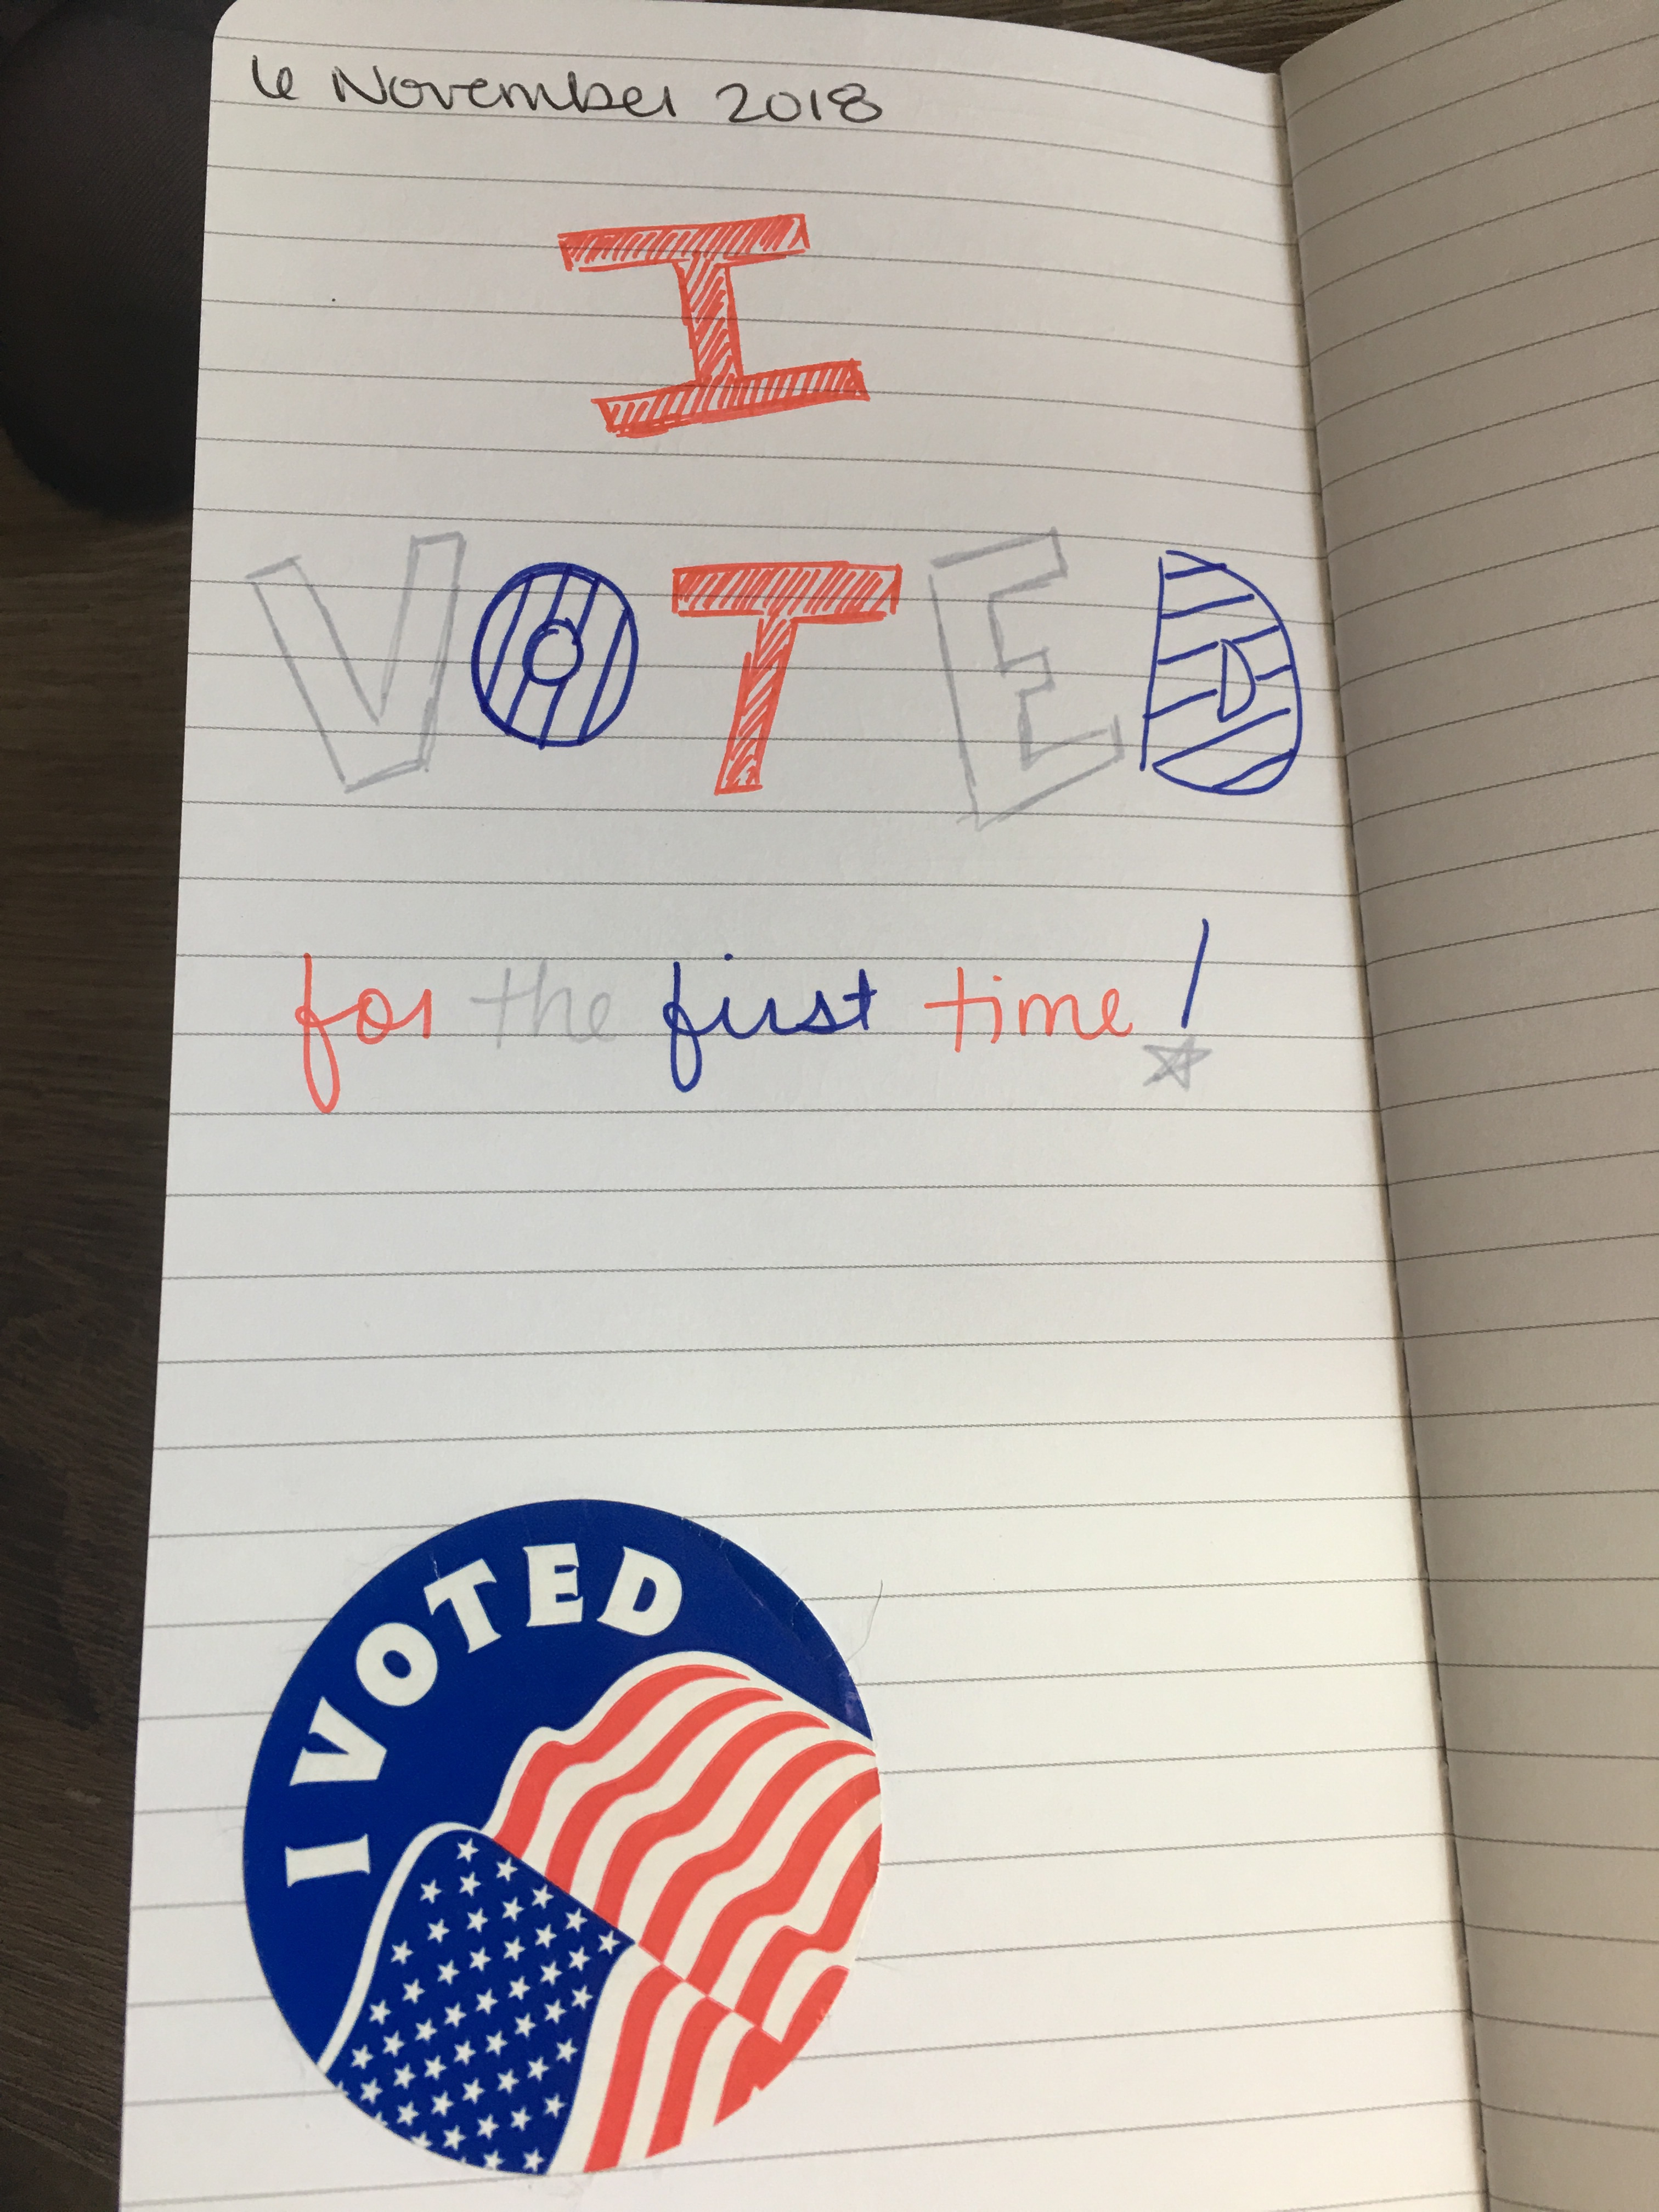 6 November 2018
I
VOTED
for the first time!
I VOTED